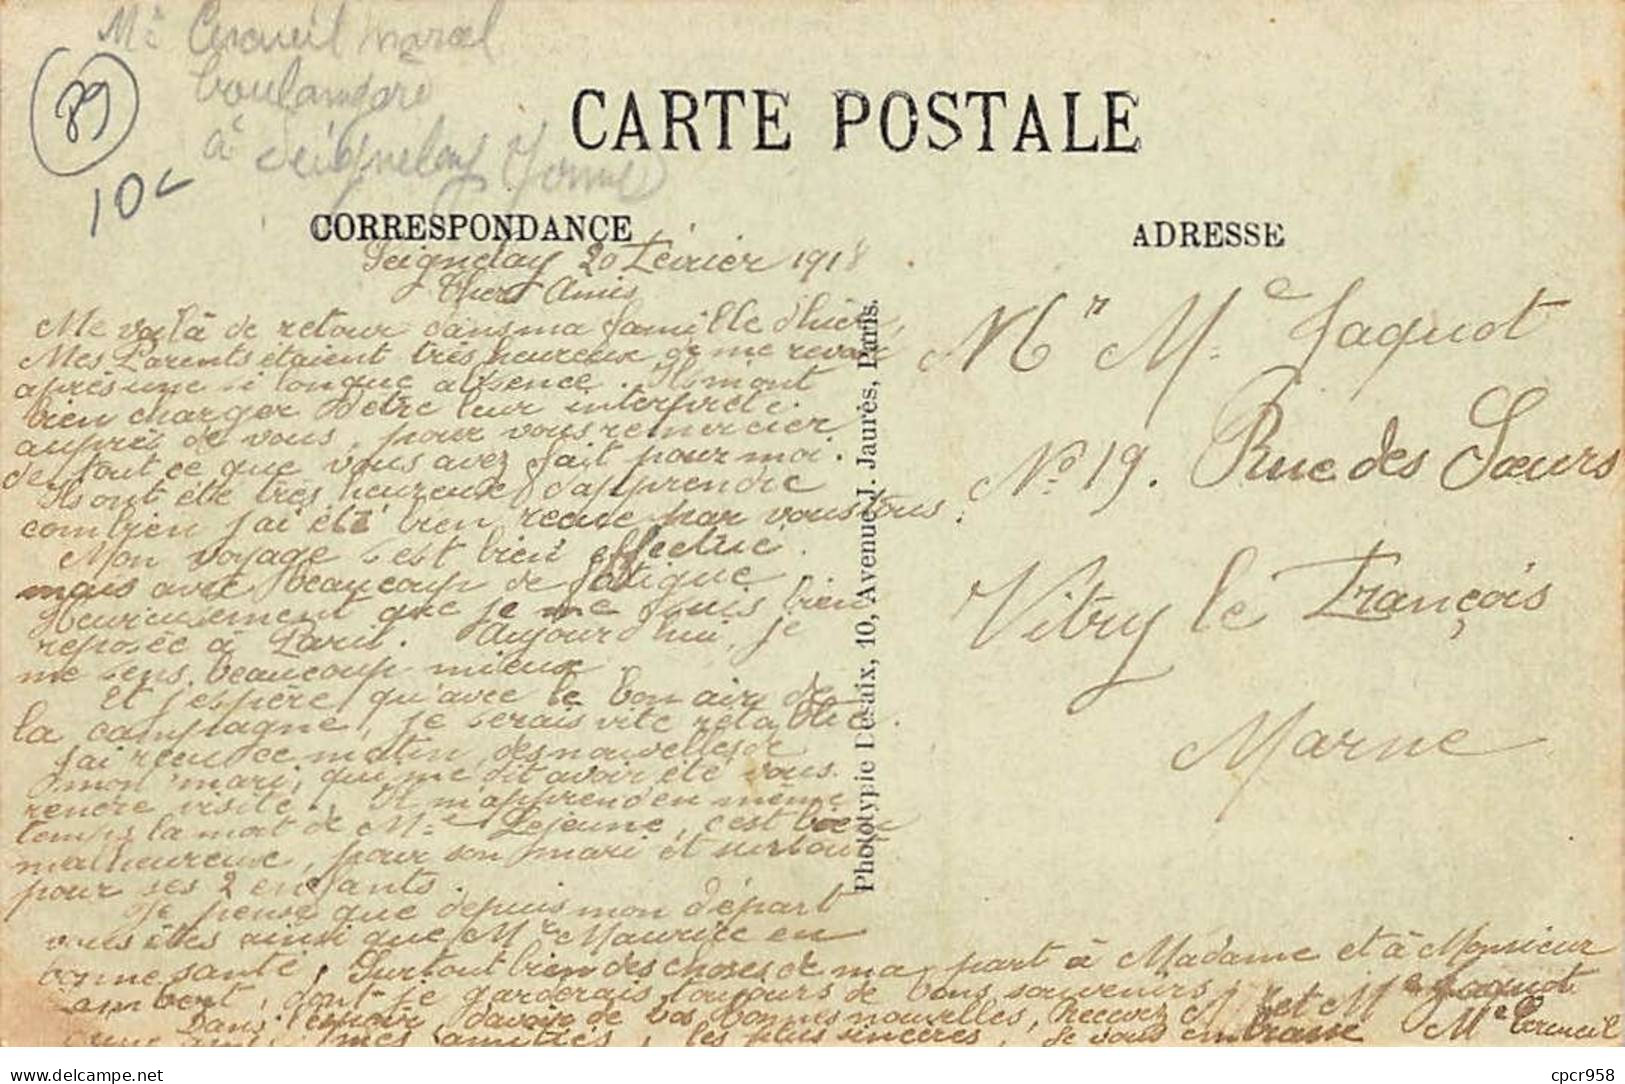 Mme Cercueil Marcel
boulangère
à Seignelay Yonne
89
10c
CARTE POSTALE
CORRESPONDANCE
ADRESSE
Seignelay 20 Février 1918
Chers Amis
Me voilà de retour dans ma famille d'hier,
Mes Parents étaient très heureux de me revoir
après une si longue absence. Ils m'ont
bien charger d'être leur interprète
auprès de vous, pour vous remercier
de tout ce que vous avez fait pour moi.
Ils ont été très heureux d'apprendre
combien j'ai été bien reçue par vous tous.
Mon voyage s'est bien effectué.
mais avec beaucoup de fatigue
Heureusement que je me suis bien
reposée à Paris. Aujourd'hui, je
me sens beaucoup mieux.
Et j'espère qu'avec le bon air de
la campagne, je serais vite rétablie.
J'ai reçu ce matin, des nouvelles de
mon mari, qui me dit avoir été vous
rendre visite. Il m'apprend en même
temps la mort de Mme Lejeune, c'est bien
malheureux, pour son mari et surtout
pour ses 2 enfants.
Je pense que depuis mon départ
vous êtes ainsi que Mr Maurice en
bonne santé, Surtout bien des choses de ma part à Madame et à Monsieur
Lambert, dont je garderais toujours de bons souvenirs,
Dans l'espoir d'avoir de vos bonnes nouvelles, Recevez Mr et Mme Jaquot
mes amitiés, les plus sincères, Je vous embrasse Mme Cercueil
Phototypie Desaix, 10, Avenue J. Jaurès, Paris.
Mr Me Jaquot
No 19. Rue des Sœurs
Vitry le François
Marne
delcampe.net
cpcr958